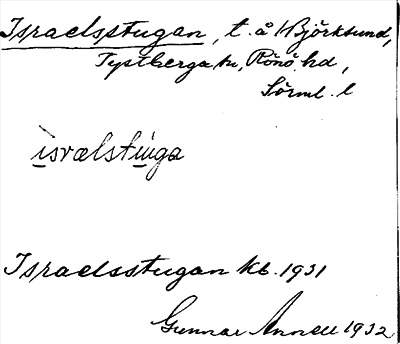 Israelsstugan, t. å Björksund,
Tystberga sn, Rönö hd,
Sörml. l
ìsrælstúga
Israelsstugan kb. 1931
Gunnar Annell 1932